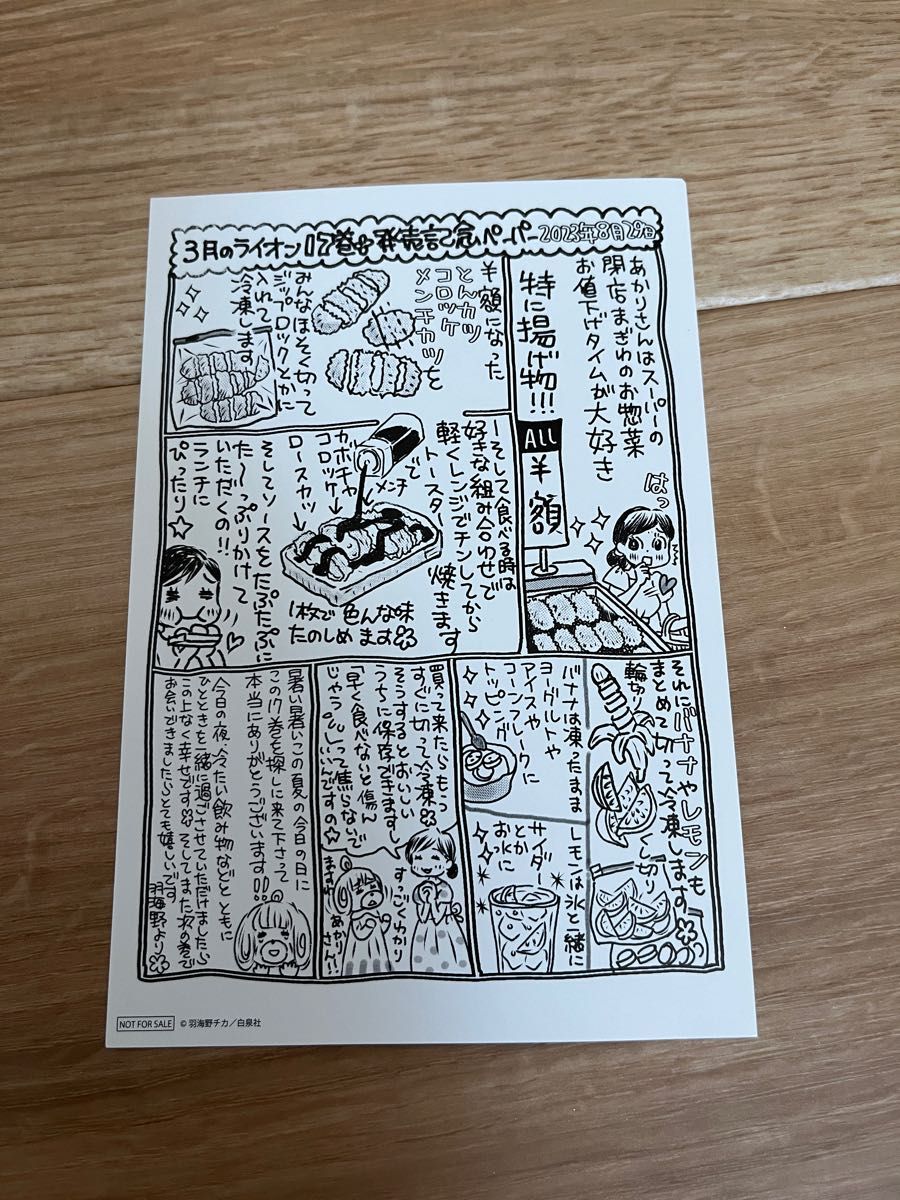 3月のライオン17巻♡発売記念ペーパー 2023年8月29日
あかりさんはスーパーの
閉店まぎわのお惣菜
お値下げタイムが大好き
特に揚げ物!!!
ALL
半額
はっ
半額になった
とんカツ
コロッケ
メンチカツを
みんなほそく切って
ジップロックとかに
入れて
冷凍します
ーそして食べる時は
好きな組み合わせで
軽くレンジでチンしてから
トースターで
焼きます
メンチ
カボチャ
コロッケ
ロースカツ
1枚で色んな味
たのしめます
そしてソースをたぷたぷに
た〜っぷりかけて
いただくの!!
ランチに
ぴったり☆
それにバナナやレモンも
まとめて切って冷凍します
輪切り
くし切り
バナナは凍ったまま
ヨーグルトや
アイスや
コーンフレークに
トッピング
レモンは氷と一緒に
サイダー
とか
お水に
買って来たらもう
すぐに切って冷凍
そうするとおいしい
うちに保存できます
「早く食べないと傷ん
じゃうって焦らないで
いいんです☆
すっごくわかり
ます
あかりさん!!
暑い暑いこの夏の今日の日に
この17巻を探しに来て下さって
本当にありがとうございます!!
今日の夜、冷たい飲み物などとともに
ひとときを一緒に過ごさせていただけましたら
この上なく幸せです そしてまた次の巻で
お会いできましたらとても嬉しいです
羽海野より
NOT FOR SALE ©羽海野チカ/白泉社